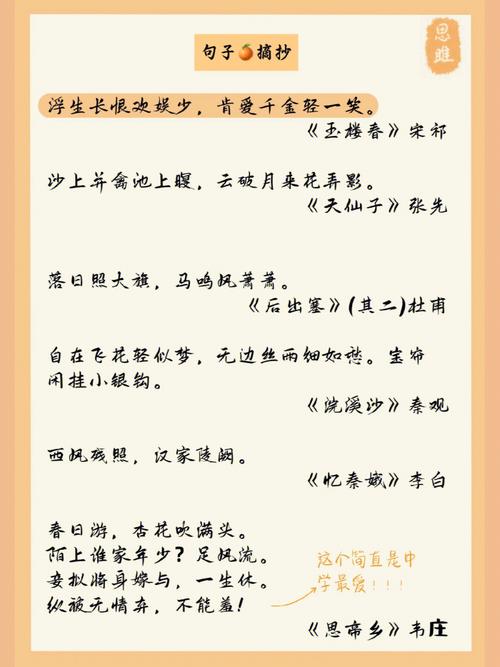 思雎
句子🍊摘抄
浮生长恨欢娱少，肯爱千金轻一笑。
《玉楼春》宋祁
沙上并禽池上暝，云破月来花弄影。
《天仙子》张先
落日照大旗，马鸣风萧萧。
《后出塞》(其二)杜甫
自在飞花轻似梦，无边丝雨细如愁。宝帘
闲挂小银钩。
《浣溪沙》秦观
西风残照，汉家陵阙。
《忆秦娥》李白
春日游，杏花吹满头。
陌上谁家年少？足风流。
妾拟将身嫁与，一生休。
纵被无情弃，不能羞！
这个简直是中
学最爱！！！
《思帝乡》韦庄